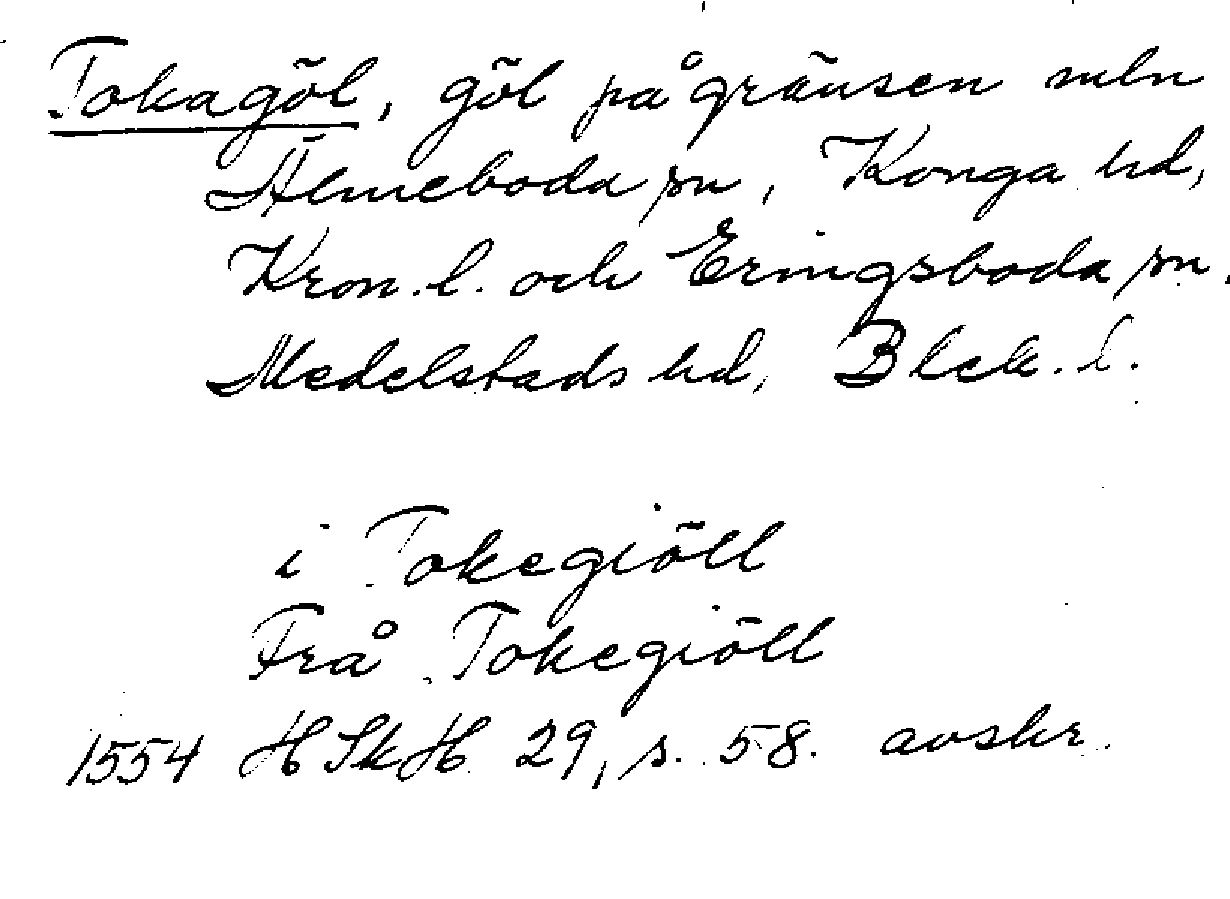 Tokagöl, göl på gränsen mln
Älmeboda sn, Konga hd,
Kron. l. och Eringsboda sn.
Medelstads hd, Blek. l.
i Tokegiöll
Frå Tokegiöll
1554 HSkH 29, s. 58. avskr.